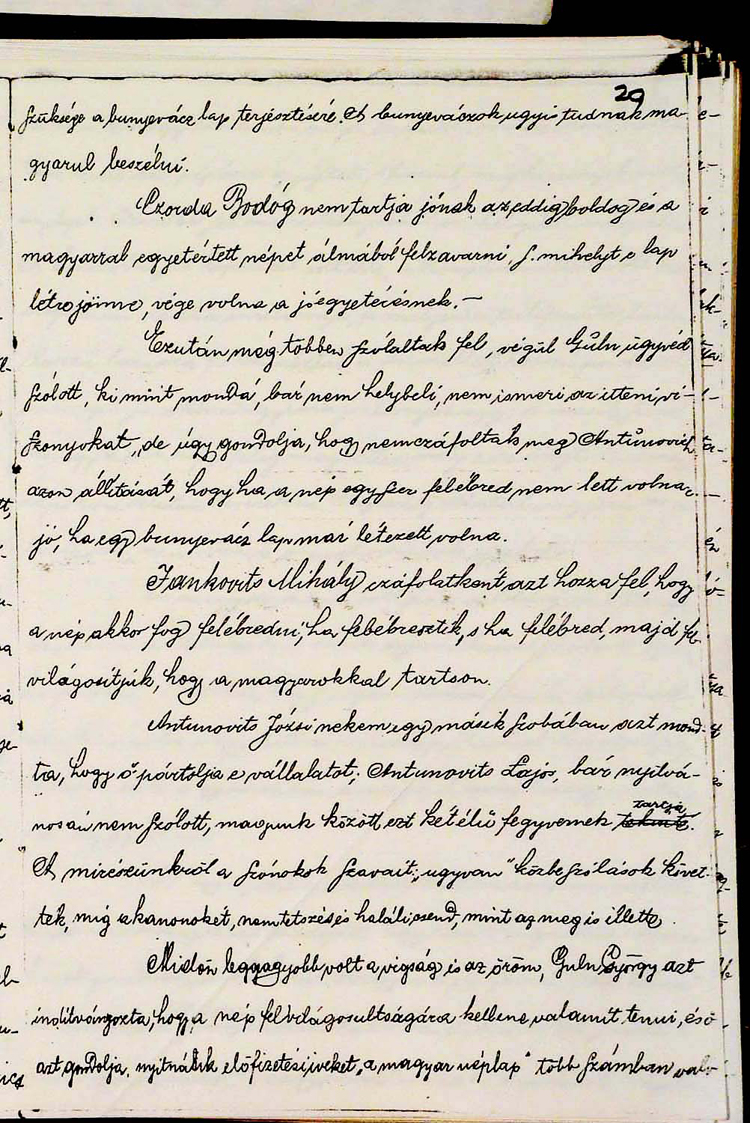 29
szüksége a bunyevácz lap terjesztésére. A bunyeváczok ugyis tudnak ma-
gyarul beszélni.
Czorda Bodóg nem tartja jónak az eddig boldog és a
magyarral egyetértett népet álmából felzavarni, s. mihelyt e lap
létre jönne, vége volna a jó egyetértésnek. —
Ezután még többen szólaltak fel, végül Guln ügyvéd
szólott, ki mint mondá, bár nem helybeli, nem ismeri az itteni vi-
szonyokat, de úgy gondolja, hogy nem czáfolták meg Antunovich
azon állítását, hogy ha a nép egyszer felébred nem lett volna-e
jó, ha egy bunyevácz lap már létezett volna.
Jankovits Mihály czáfolatként azt hozza fel, hogy
a nép akkor fog felébredni, ha felébresztik, s ha felébred, majd fel
világosítjuk, hogy a magyarokkal tartson.
Antunovits Józsi nekem egy másik szobában azt mond-
ta, hogy ő pártolja e vállalatot; Antunovits Lajos, bár nyilvá-
nosan nem szólott, magunk között ezt kétélű fegyvernek tartja.
A mi részünkről a szónokok szavait „ugyvan" közbeszólások követ-
ték, míg a kanonokét, nemtetszés és halálicsend, mint az meg is illette.
Midőn legnagyobb volt a vigság és az öröm, Guln György azt
indítványozta, hogy a nép felvilágosultságára kellene valamit tenni, és ő
azt gondolja, nyitnánk előfizetési iveket, „a magyar néplap" több számban való